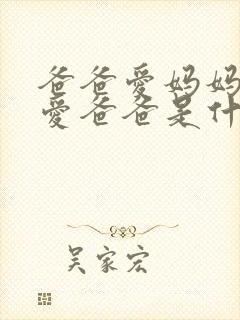 爸爸爱妈妈
爱爸爸是什
吴家宏